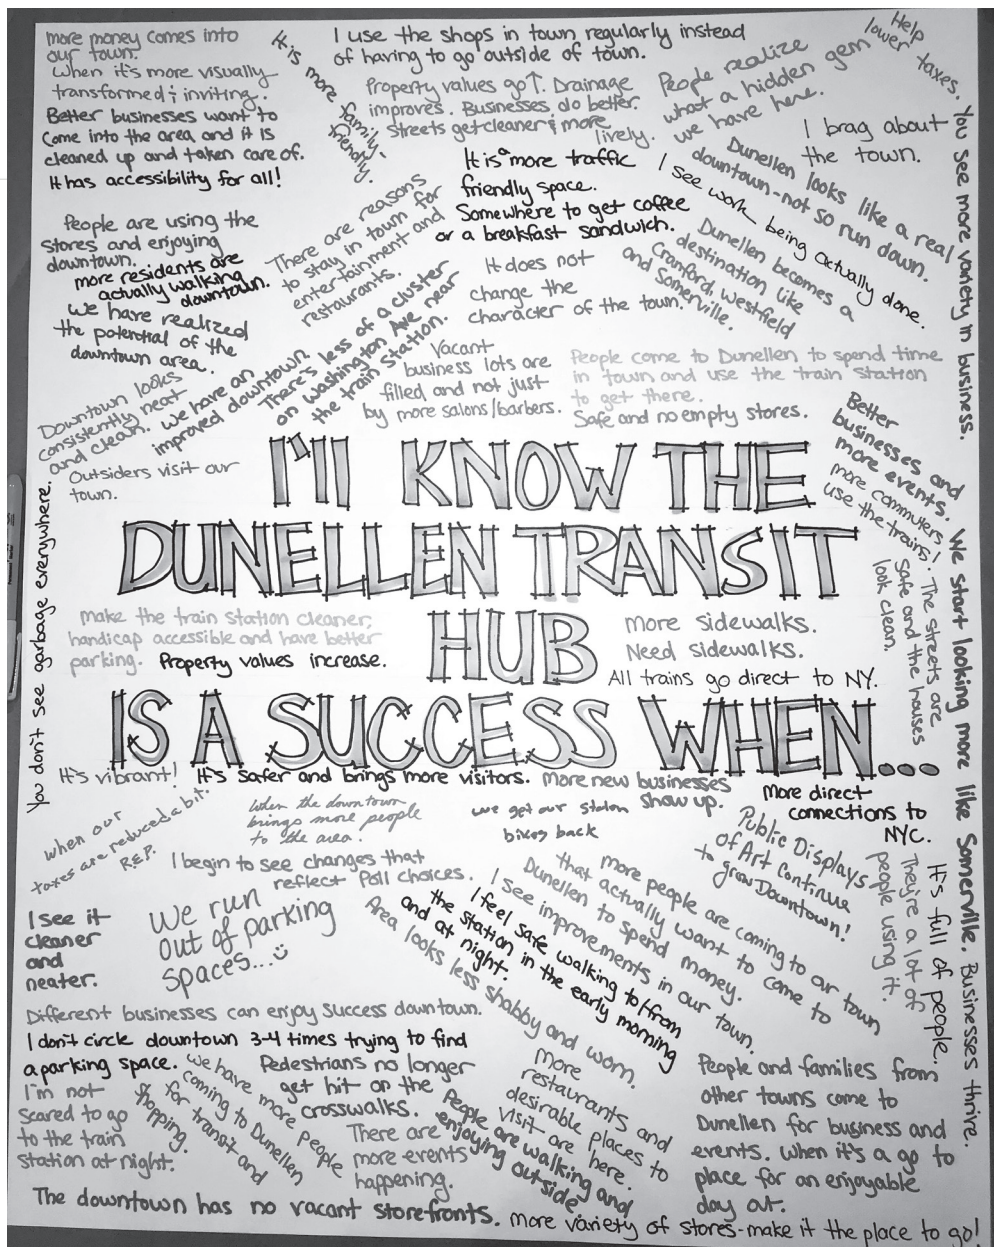 more money comes into
our town.
When it's more visually
transformed & inviting.
Better businesses want to
come into the area and it is
cleaned up and taken care of.
It has accessibility for all!
It is more
family
friendly.
I use the shops in town regularly instead
of having to go outside of town.
Property values go ↑. Drainage
improves. Businesses do better.
Streets get cleaner & more
lively.
People realize
what a hidden gem
we have here.
Help
lower taxes.
I brag about
the town.
You see more variety in business.
It is a more traffic
friendly space.
Somewhere to get coffee
or a breakfast sandwich.
Dunellen looks like a real
downtown-not so run down.
I see work being actually done.
People are using the
stores and enjoying
downtown.
more residents are
actually walking
downtown.
We have realized
the potential of the
downtown area.
There are reasons
to stay in town for
entertainment and
restaurants.
It does not
change the
character of the town.
Dunellen becomes a
destination like
Cranford, Westfield
and Somerville.
Downtown looks
consistently neat
and clean.
We have an
improved downtown
There's less of a cluster
on Washington Ave near
the train station.
Vacant
business lots are
filled and not just
by more salons/barbers.
People come to Dunellen to spend time
in town and use the train station
to get there.
Safe and no empty stores.
Outsiders visit our
town.
Better
businesses and
more events.
more commuters!
use the trains!
You don't see garbage everywhere.
I'll KNOW THE
DUNELLEN TRANSIT
HUB
IS A SUCCESS WHEN...
make the train station cleaner,
handicap accessible and have better
parking. Property values increase.
more sidewalks.
Need sidewalks.
All trains go direct to NY.
The streets are
safe and the houses
look clean.
We start looking more like Somerville.
It's vibrant!
It's safer and brings more visitors.
more new businesses
show up.
More direct
connections to
NYC.
When our
taxes are reduced a bit.
R.E.P.
When the downtown
brings more people
to the area.
we get our station
bikes back
Public Displays
of Art Continue
to grow Downtown!
I begin to see changes that
reflect Poll choices.
I see it
cleaner
and
neater.
We run
out of parking
spaces...
more people are coming to our town
that actually want to come to
Dunellen to spend money.
I see improvements in our town.
I feel safe walking to/from
the station in the early morning
and at night.
Area looks less shabby and worn.
They're a lot of
people using it.
It's full of people.
Businesses thrive.
Different businesses can enjoy success downtown.
I don't circle downtown 3-4 times trying to find
a parking space.
I'm not
scared to go
to the train
station at night.
We have more people
coming to Dunellen
for transit and
shopping.
Pedestrians no longer
get hit on the
crosswalks.
There are
more events
happening.
People are walking and
enjoying outside.
more
restaurants and
desirable places to
visit are here.
People and families from
other towns come to
Dunellen for business and
events. When it's a go to
place for an enjoyable
day out.
The downtown has no vacant storefronts.
more variety of stores-make it the place to go!